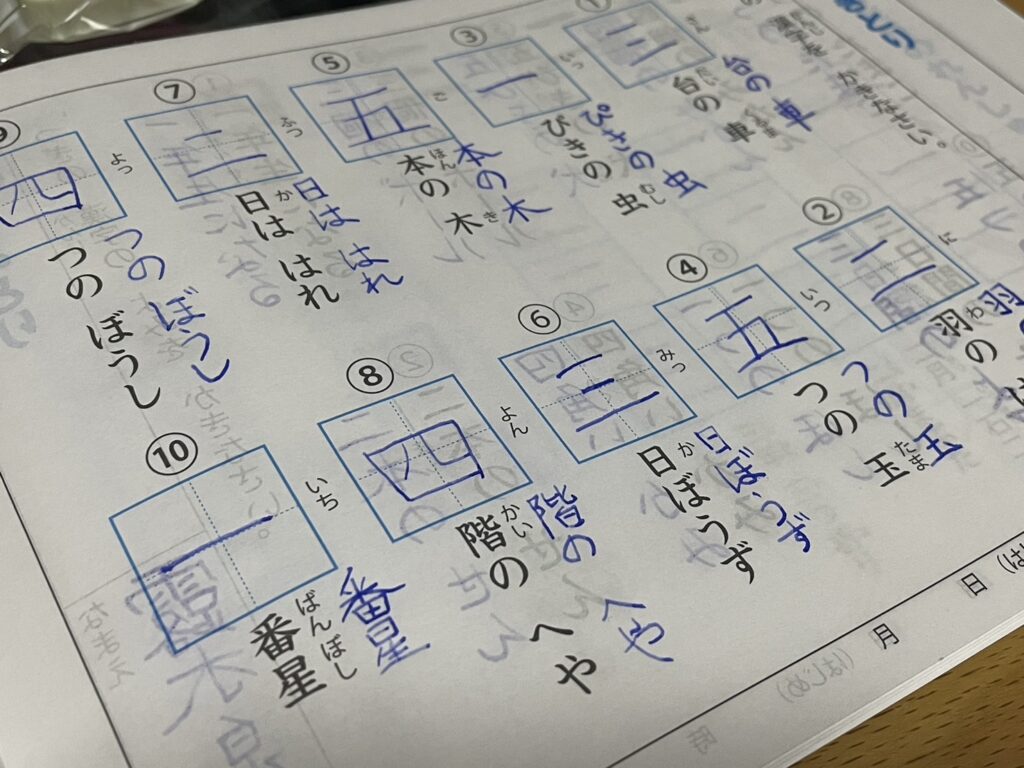 漢字を かきなさい。
①
三
台の 車
台の 車
②
に
二
羽の
羽の
わ
③
いっ
一
ぴきの 虫
ぴきの 虫
むし
④
いつ
五
つの 玉
つの 玉
たま
⑤
ご
五
本の 木
本の 木
ほん
き
⑥
みっ
三
日ぼうず
日ぼうず
か
⑦
ふつ
二
日は はれ
日は はれ
か
⑧
よん
四
階の へや
階の へや
かい
⑨
よっ
四
つの ぼうし
つの ぼうし
⑩
いち
一
番星
番星
ばんぼし
月 日